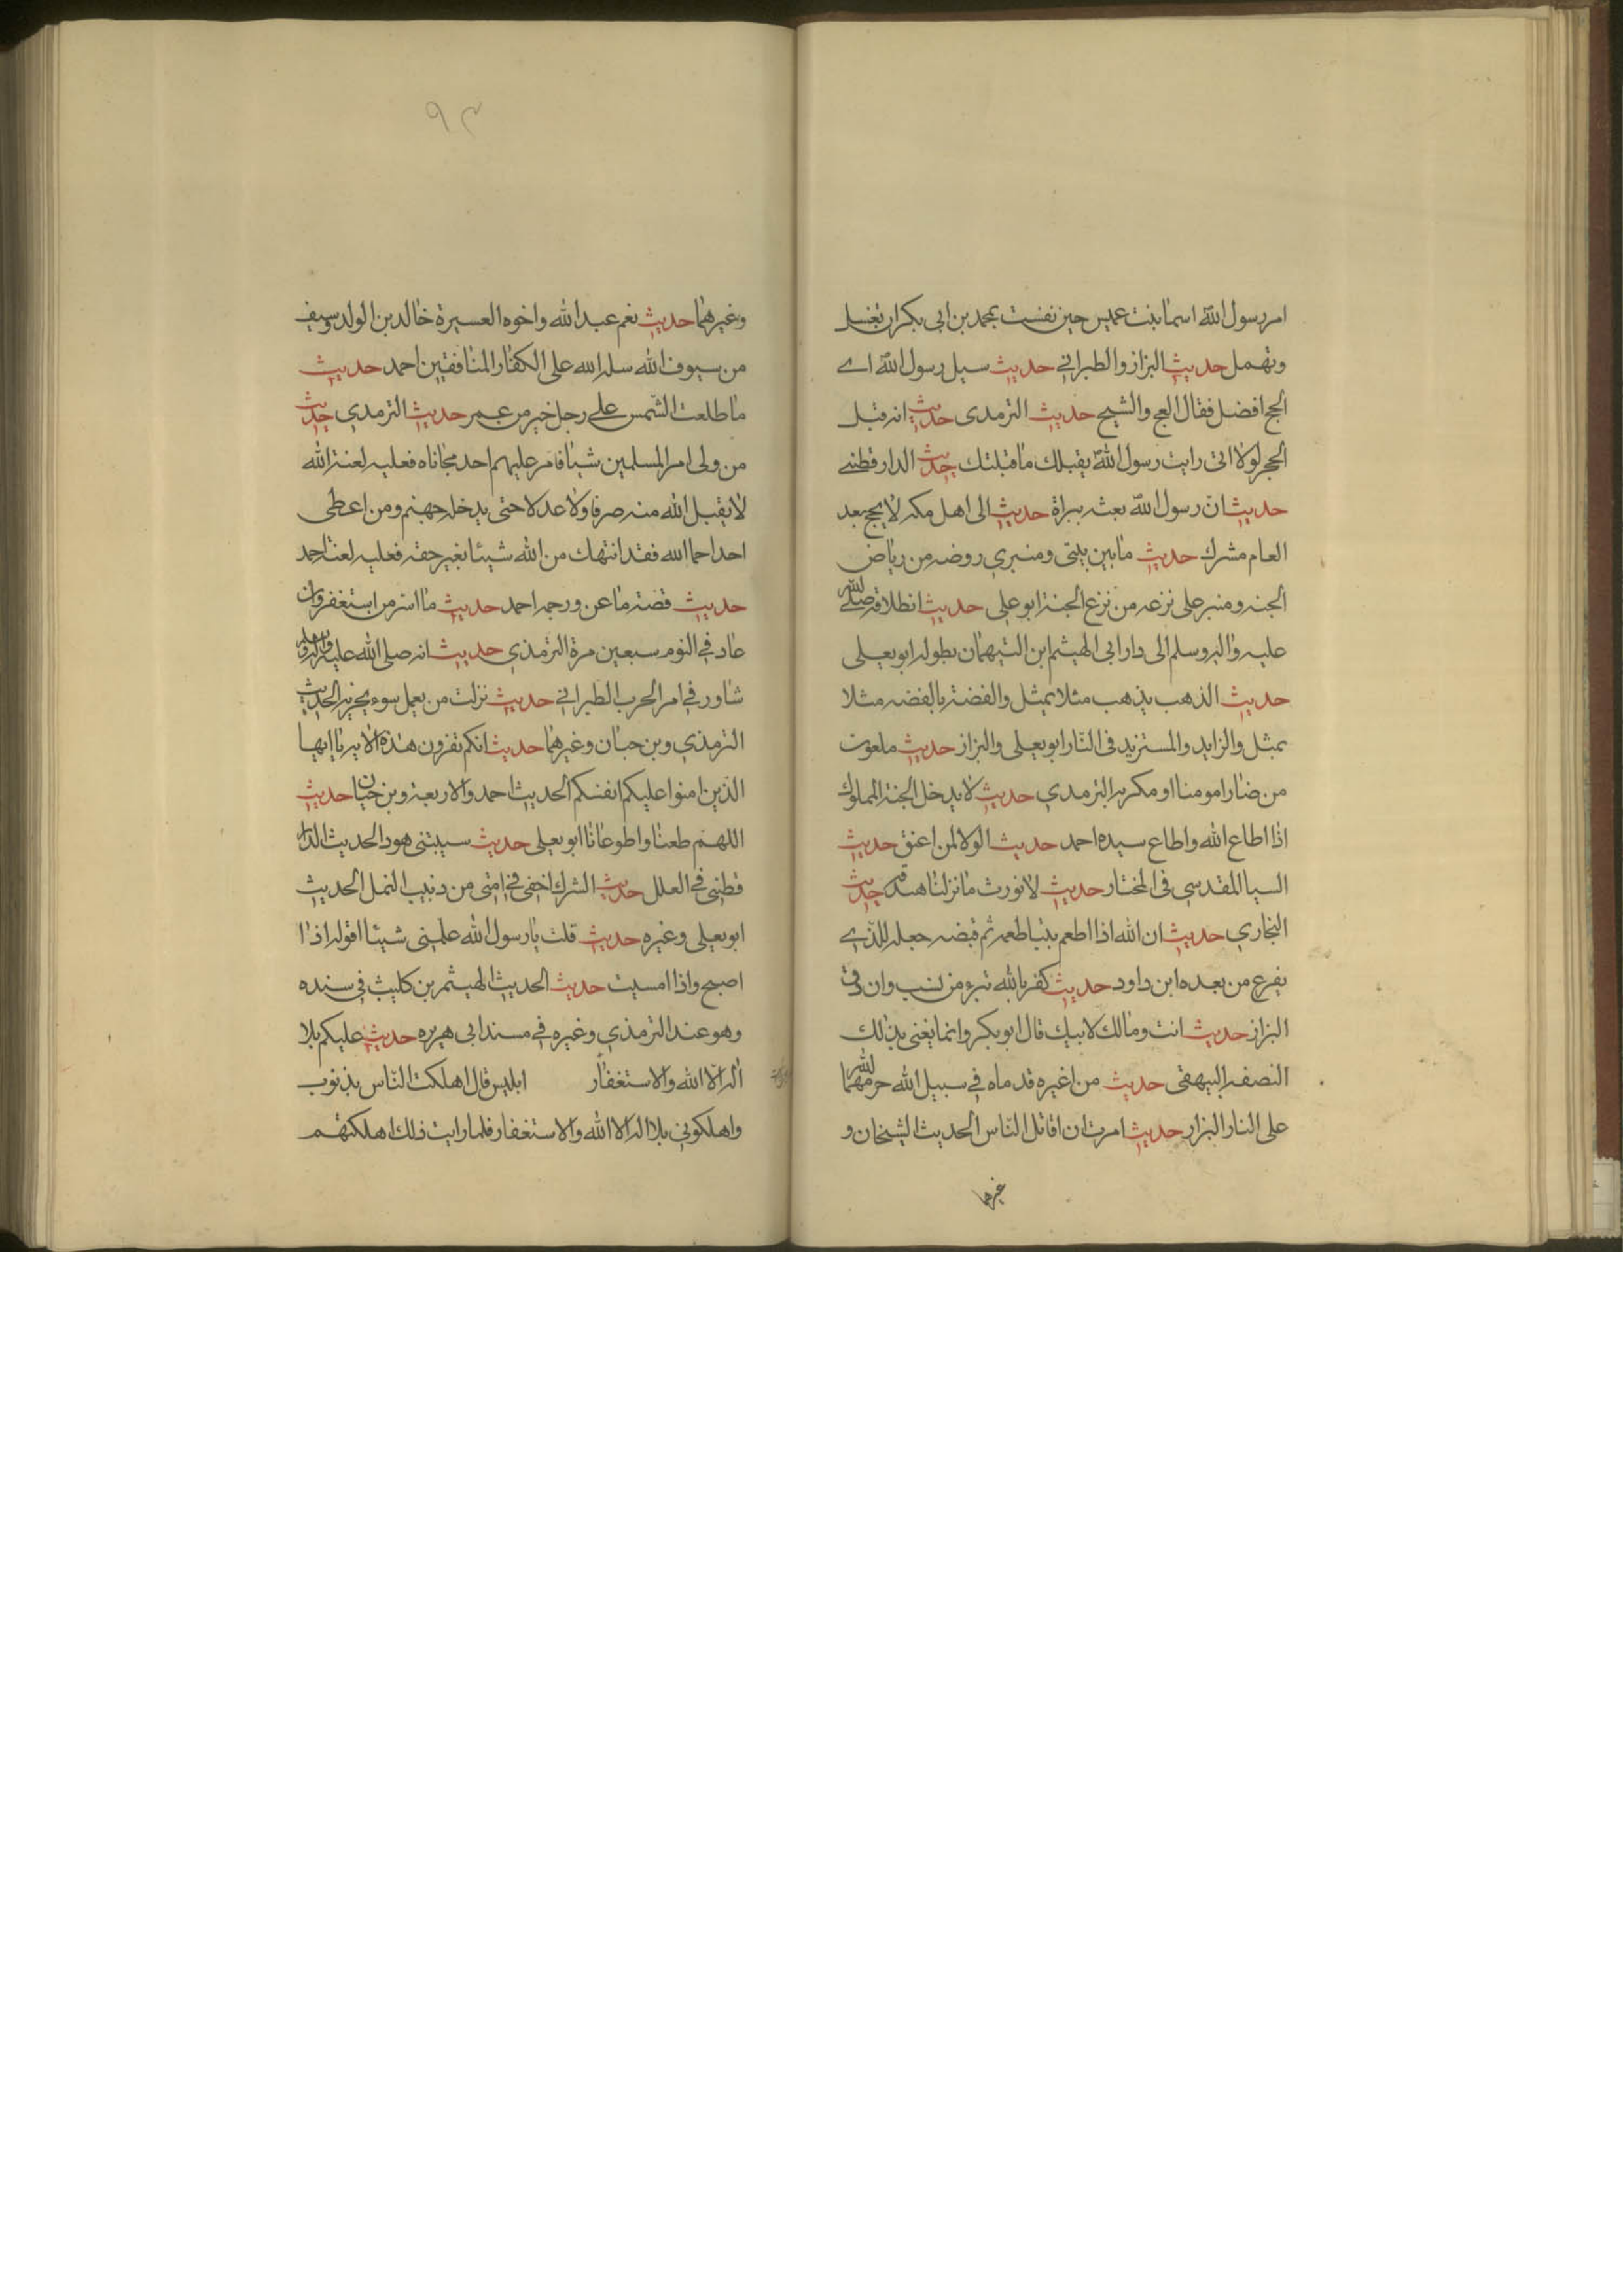 امر رسول الله اسما بنت عميس حين نفست بمحمد بن ابى بكر ان تغتسل
وتهمل حديث البزاز والطبراني حديث سيل رسول الله اے
الحج افضل فقال العج والشيح حديث الترمدى حديث انه قبل
الحجر لولا انى رايت رسول الله يقبلك ما قبلتك حديث الدار قطنے
حديث ان رسول الله بعثه ببراة حديث الى اهل مكه لا يحج بعد
العام مشرك حديث ما بين بيتى ومنبري روضه من رياض
الجنه ومنبر على نزعه من نزع الجنة ابو على حديث انطلاقه صلى الله
عليه واله وسلم الى دار ابى الهيثم ابن التيهمان بطوله ابو يعلى
حديث الذهب بذهب مثلا بمثل والفضة بالفضه مثلا
بمثل والزايد والمستزيد فى النار ابو يعلى والبزاز حديث ملعون
من ضار مومنا او مكر به الترمدي حديث لا يدخل الجنة المملوك
اذا اطاع الله واطاع سيده احمد حديث الولا لمن اعتق حديث
السيا المقدسى فى المختار حديث لا نورث ما تركنا صدقه حديث
البخاري حديث ان الله اذا اطعم نبيا طعمه ثم قبضه جعله للذے
يفرع من بعده ابن داود حديث كفر بالله تبرء من نسب وان دق
البزاز حديث انت ومالك لابيك قال ابو بكر وانما يغنى بذلك
النصفه البيهقى حديث من اغبره قدماه في سبيل الله حرمهما الله
على النار البزار حديث امرت ان اقاتل الناس الحديث الشيخان و
غيرهما
٩٣
وغيرهما حديث نعم عبد الله واخوه العسيرة خالد بن الولد وسيف
من سيوف الله سله الله على الكفار المنافقين احمد حديث
ما طلعت الشمس على رجل خير من عمر حديث الترمدي حديث
من ولى امر المسلمين شيا فامر عليهم احد محاباه فعليه لعنة الله
لا يقبل الله منه صرفا ولا عدلا حتى يدخله جهنم ومن اعطى
احدا حما الله فقد انتهك من الله شيئا بغير حقه فعليه لعنة احمد
حديث قصة ماعز ورجمه احمد حديث ما اسر من استغفر وان
عاد في النوم سبعين مرة الترمذي حديث انه صلى الله عليه واله وسلم
شاور في امر الحرب الطبراني حديث نزلت من يعمل سوء يجز به الحديث
الترمذي وبن حبان وغيرهما حديث انكم تقرون هذه الايه يا ايها
الذين امنوا عليكم انفسكم الحديث احمد والاربعة وبن حبان حديث
اللهم طعنا واطوعانا ابو يعلى حديث سيبتنى هود الحديث الدار
قطنى في العلل حديث الشرك اخفى في امتى من دبيب النمل الحديث
ابو يعلى وغيره حديث قلت يا رسول الله علمنى شيئا اقوله اذا
اصبح واذا امسيت حديث الحديث الهيثم بن كليب في سنده
وهو عند الترمذي وغيره في مسند ابى هيره حديث عليكم بلا
اله الا الله والاستغفار ابليس قال اهلكت الناس بذنوب
واهلكوني بلا اله الا الله والاستغفار فلما رايت ذلك اهلكتهم